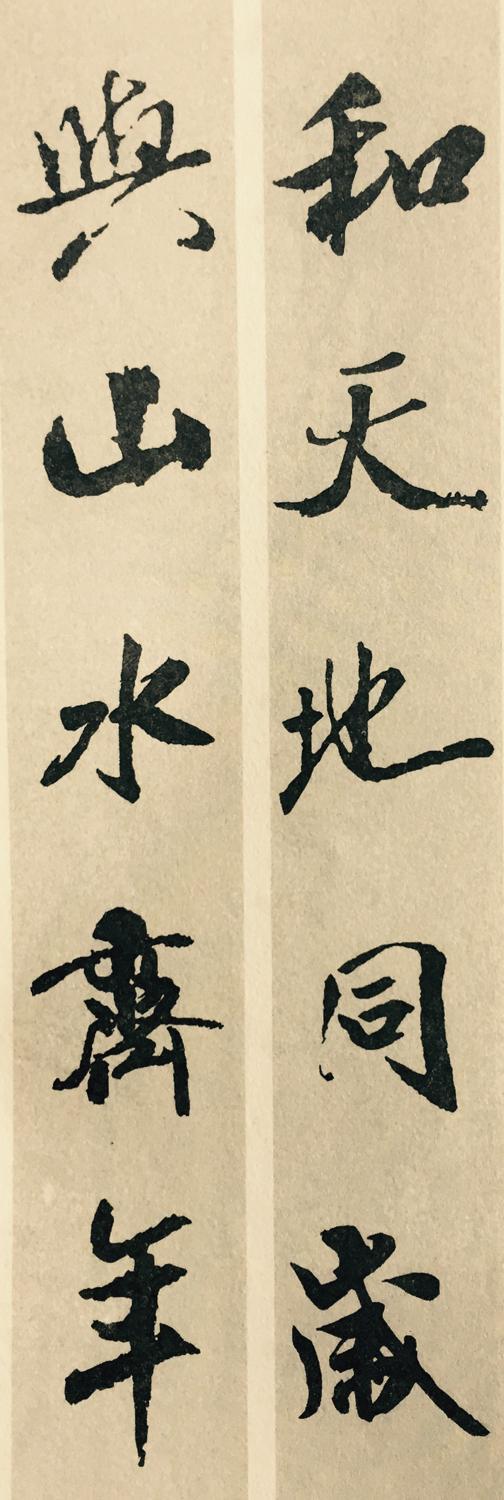 和天地同歲
與山水齊年